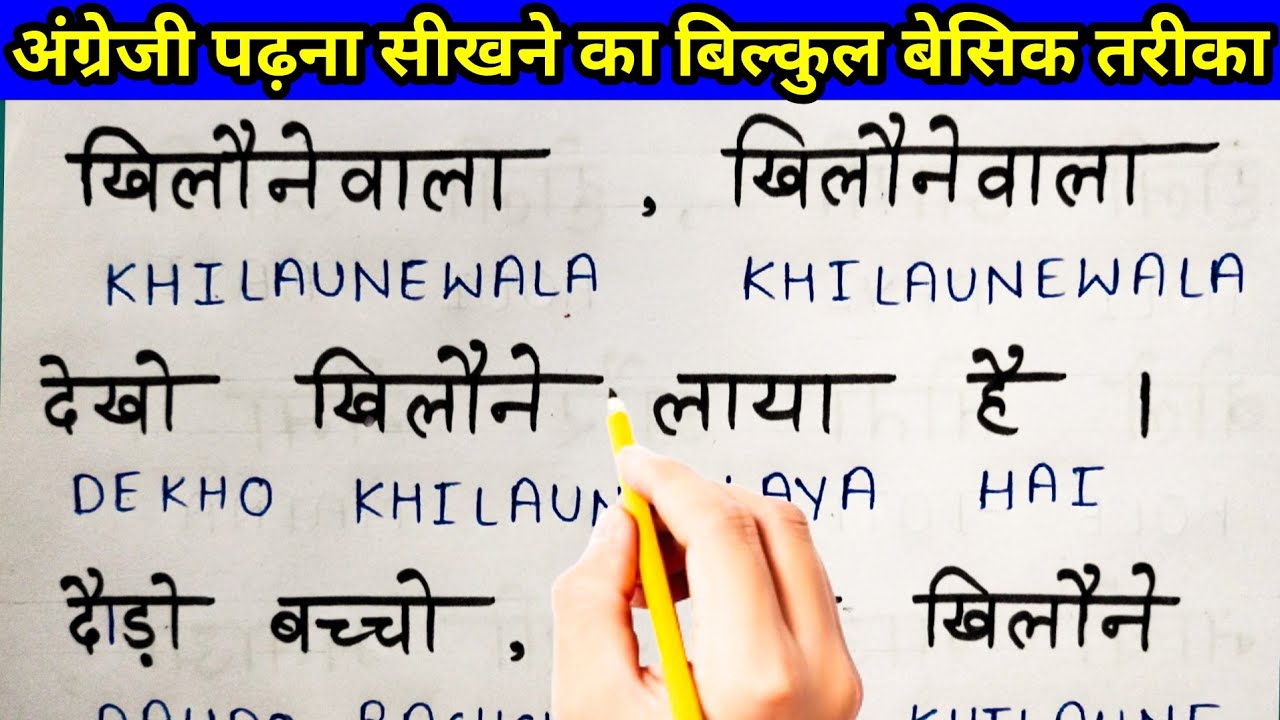 अंग्रेजी पढ़ना सीखने का बिल्कुल बेसिक तरीका
खिलौनेवाला , खिलौनेवाला
KHILAUNEWALA KHILAUNEWALA
देखो खिलौने लाया है ।
DEKHO HAI
दौड़ो बच्चो , खिलौने